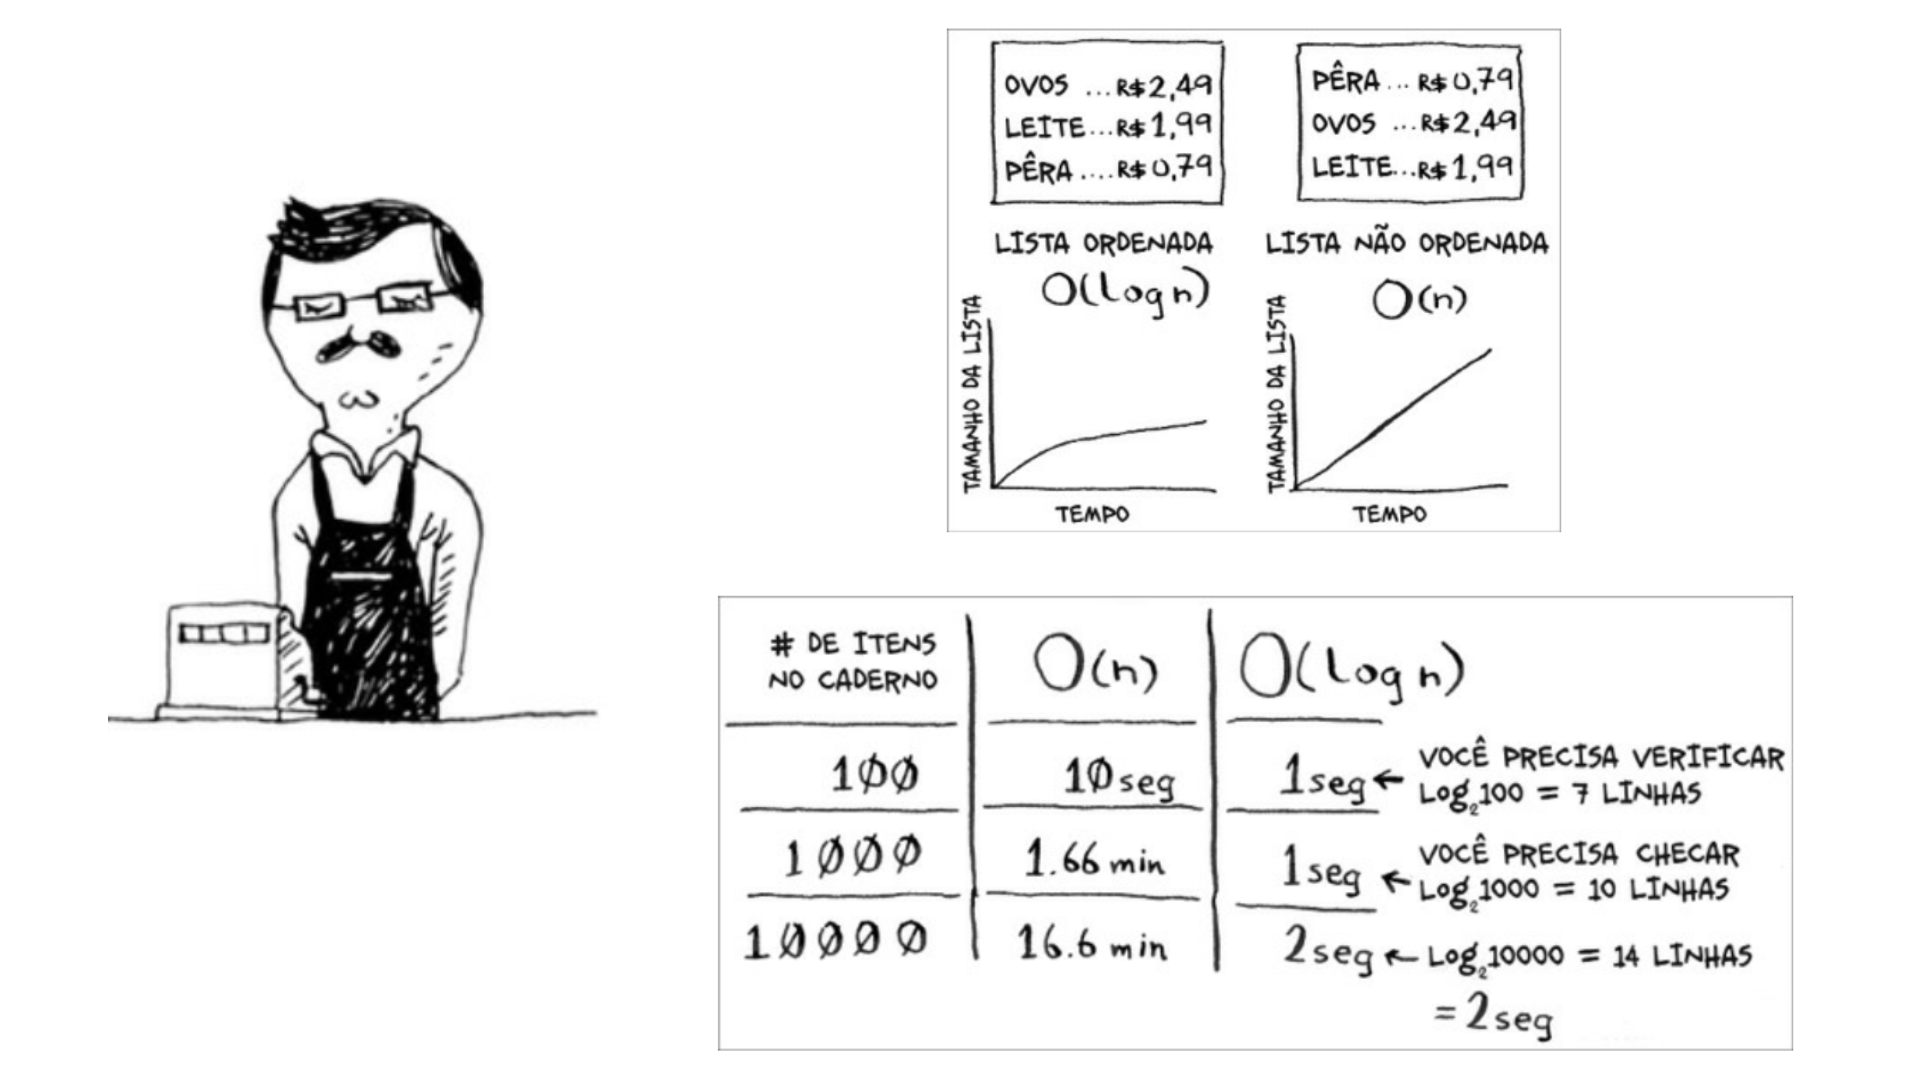 OVOS ... R$2,49
LEITE...R$1,99
PÊRA ....R$0,79
LISTA ORDENADA
O(log n)
TAMANHO DA LISTA
TEMPO
PÊRA... R$0,79
OVOS ...R$2,49
LEITE...R$1,99
LISTA NÃO ORDENADA
O(n)
TAMANHO DA LISTA
TEMPO
# DE ITENS
NO CADERNO
O(n)
O(log n)
100
10 seg
1seg ← VOCÊ PRECISA VERIFICAR
Log₂100 = 7 LINHAS
1000
1.66 min
1seg ← VOCÊ PRECISA CHECAR
Log₂1000 = 10 LINHAS
10000
16.6 min
2seg ← Log₂10000 = 14 LINHAS
= 2seg